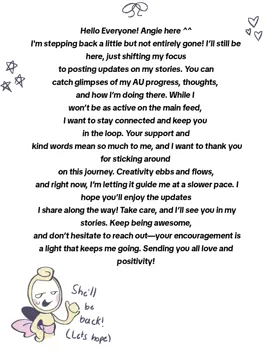 Hello Everyone! Angie here ^^
I'm stepping back a little but not entirely gone! I'll still be
here, just shifting my focus
to posting updates on my stories. You can
catch glimpses of my AU progress, thoughts,
and how I'm doing there. While I
won't be as active on the main feed,
I want to stay connected and keep you
in the loop. Your support and
kind words mean so much to me, and I want to thank you
for sticking around
on this journey. Creativity ebbs and flows,
and right now, I'm letting it guide me at a slower pace. I
hope you'll enjoy the updates
I share along the way! Take care, and I'll see you in my
stories. Keep being awesome,
and don't hesitate to reach out—your encouragement is
a light that keeps me going. Sending you all love and
positivity!
She'll
be
back!
(Lets hope)